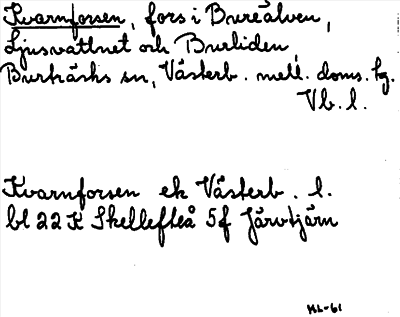 Kvarnforsen, fors i Bureälven,
Ljusvattnet och Burliden,
Burträsks sn, Västerb. mell. doms. tg.
Vb. l.
Kvarnforsen ek Västerb. l.
bl 22 K Skellefteå 5f Järvtjärn
KL-61